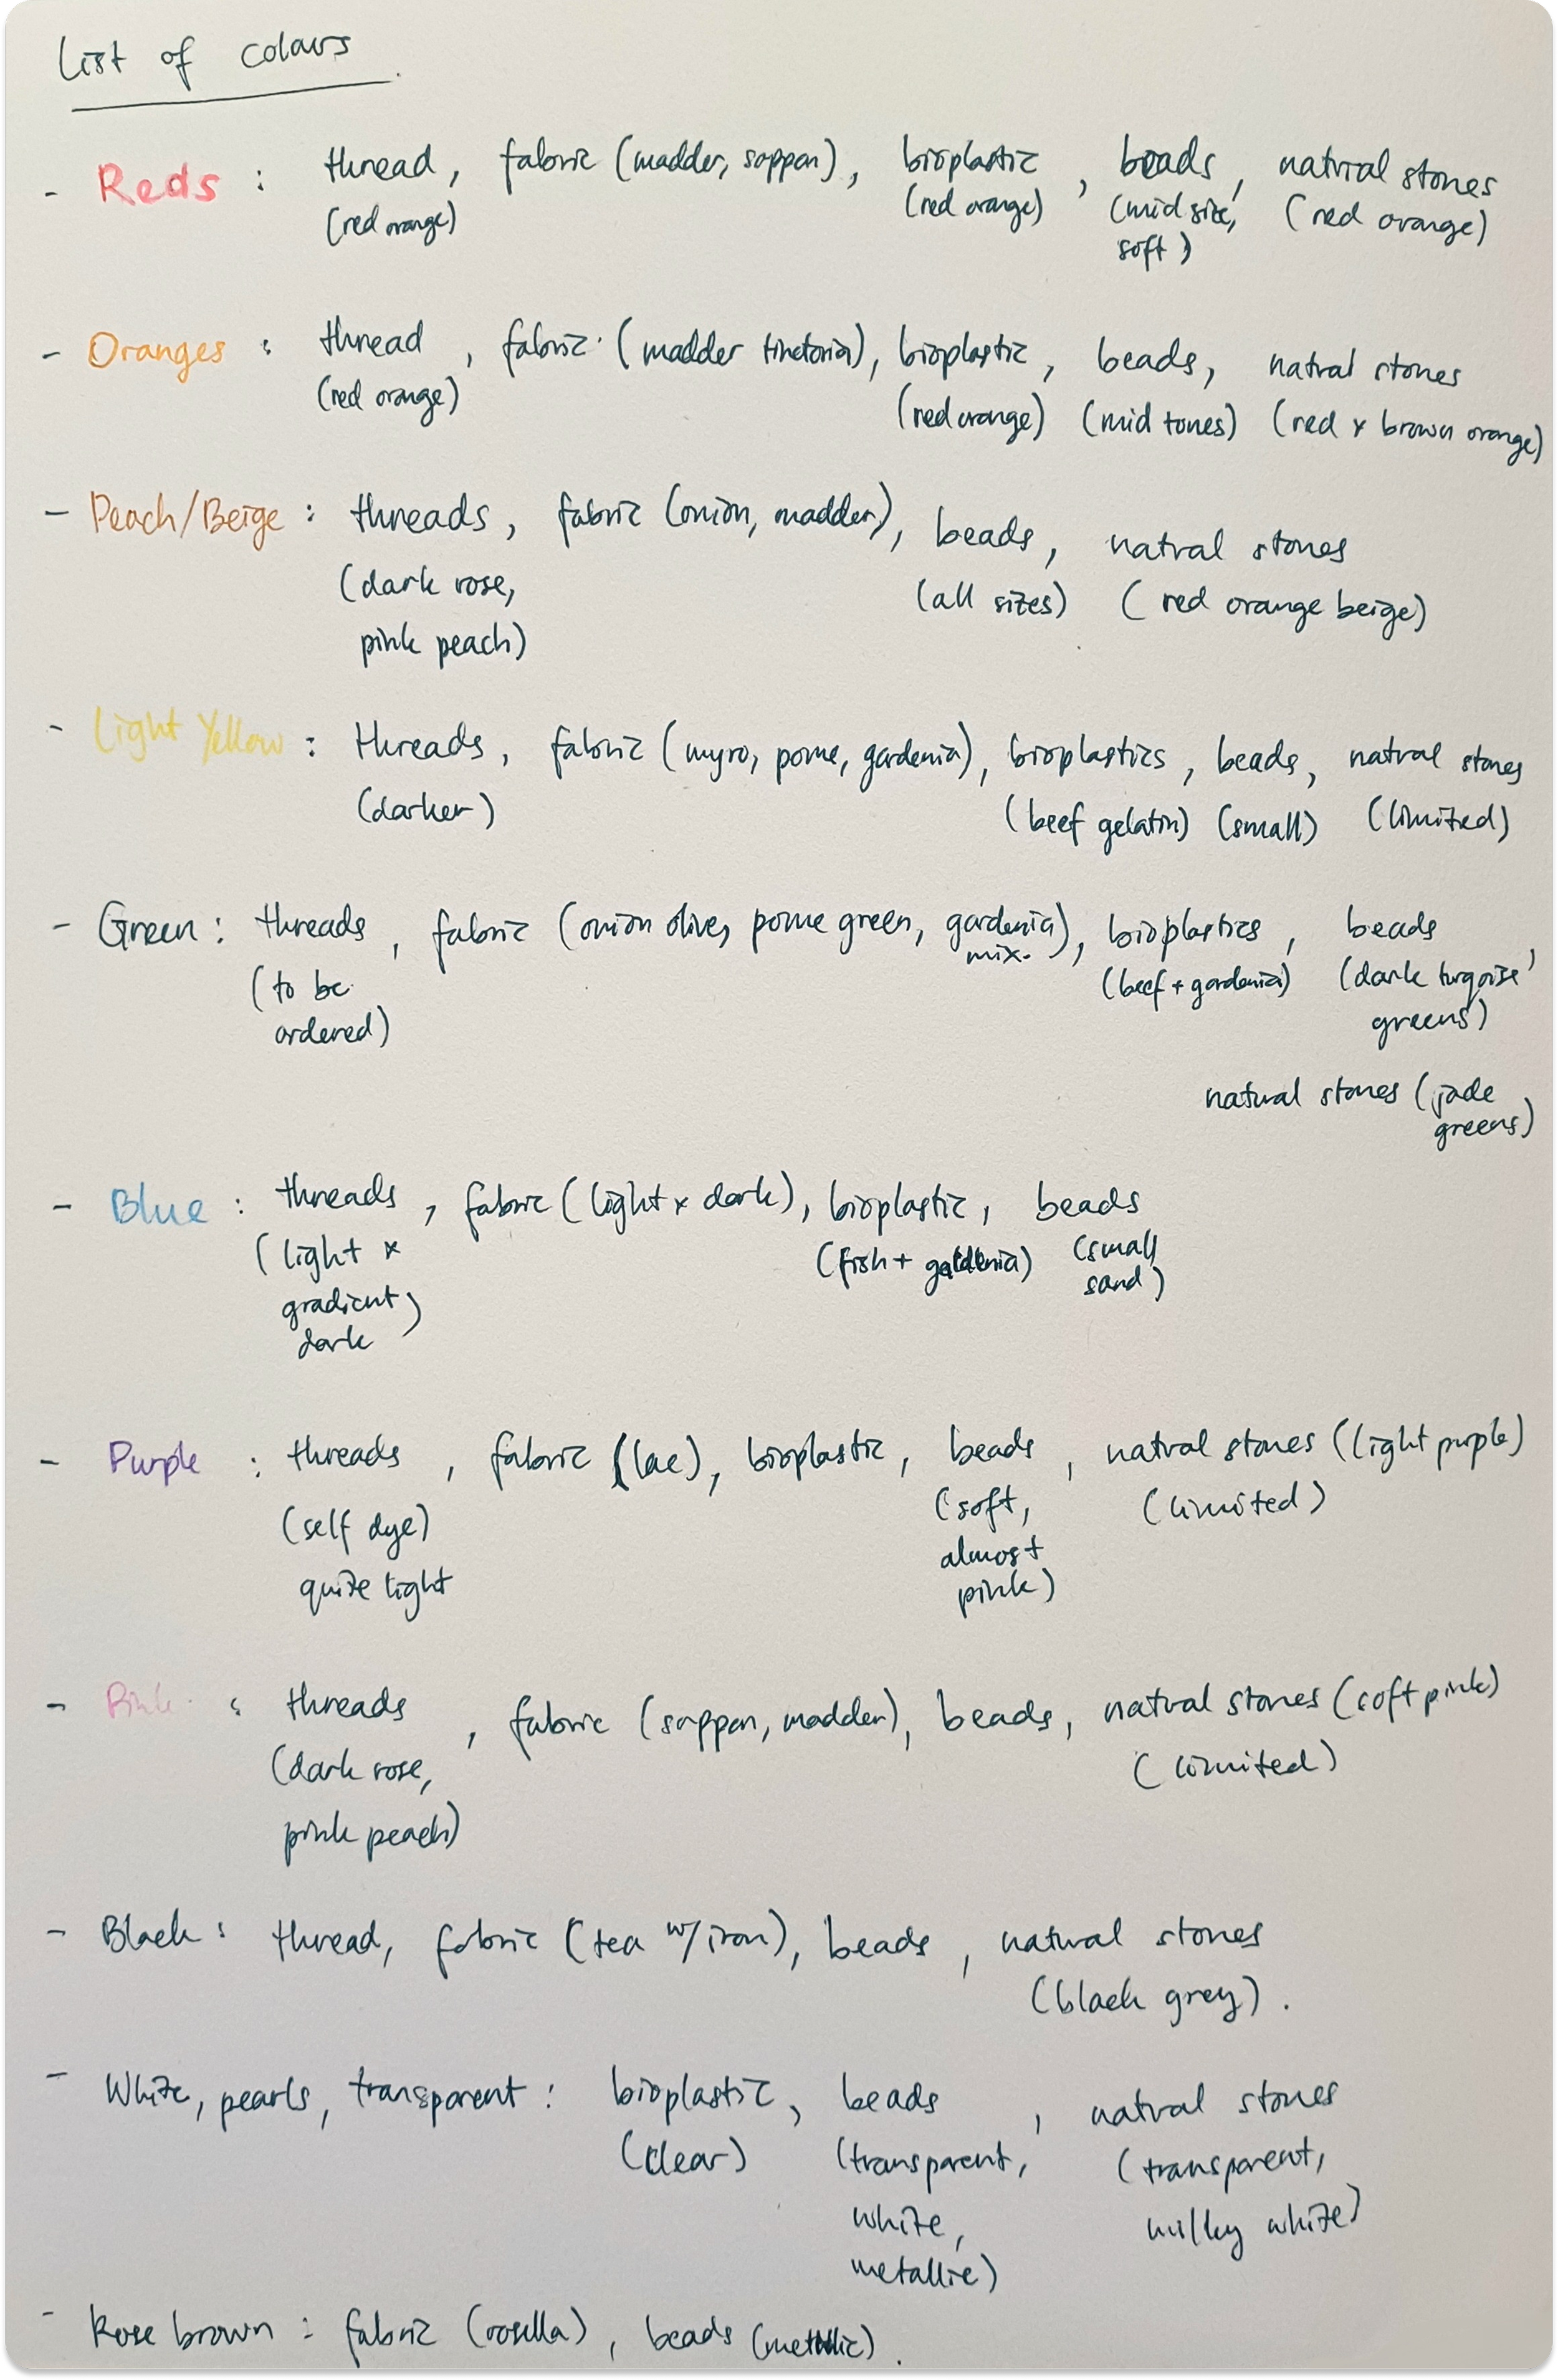 List of colours
- Reds : thread, fabric (madder, sappan), bioplastic, beads, natural stones
(red orange) (red orange) (mid size, (red orange)
soft)
- Oranges : thread, fabric (madder tinctoria), bioplastic, beads, natral stones
(red orange) (red orange) (mid tones) (red x brown orange)
- Peach/Beige : threads, fabric (onion, madder), beads, natral stones
(dark rose, (all sizes) (red orange beige)
pink peach)
- Light Yellow : threads, fabric (myro, pome, gardenia), bioplastics, beads, natral stones
(darker) (beef gelatin) (small) (limited)
- Green : threads, fabric (onion olive, pome green, gardenia), bioplastics, beads,
mix.
(to be (beef + gardenia) (dark turqoise
ordered) greens)
natural stones (jade
greens)
- Blue : threads, fabric (light x dark), bioplastic, beads
(light x (fish + gardenia) (small
gradient) sand)
dark
- Purple : threads, fabric (lac), bioplastic, beads, natral stones (light purple)
(self dye) (soft, (limited)
quite light almost
pink)
- Pink : threads, fabric (sappan, madder), beads, natral stones (soft pink)
(dark rose, (limited)
pink peach)
- Black : thread, fabric (tea w/ iron), beads, natural stones
(black grey).
- White, pearls, transparent : bioplastic, beads, natral stones
(clear) (transparent, (transparent,
white, milky white)
metallic)
- Rose brown : fabric (rosella), beads (metallic).